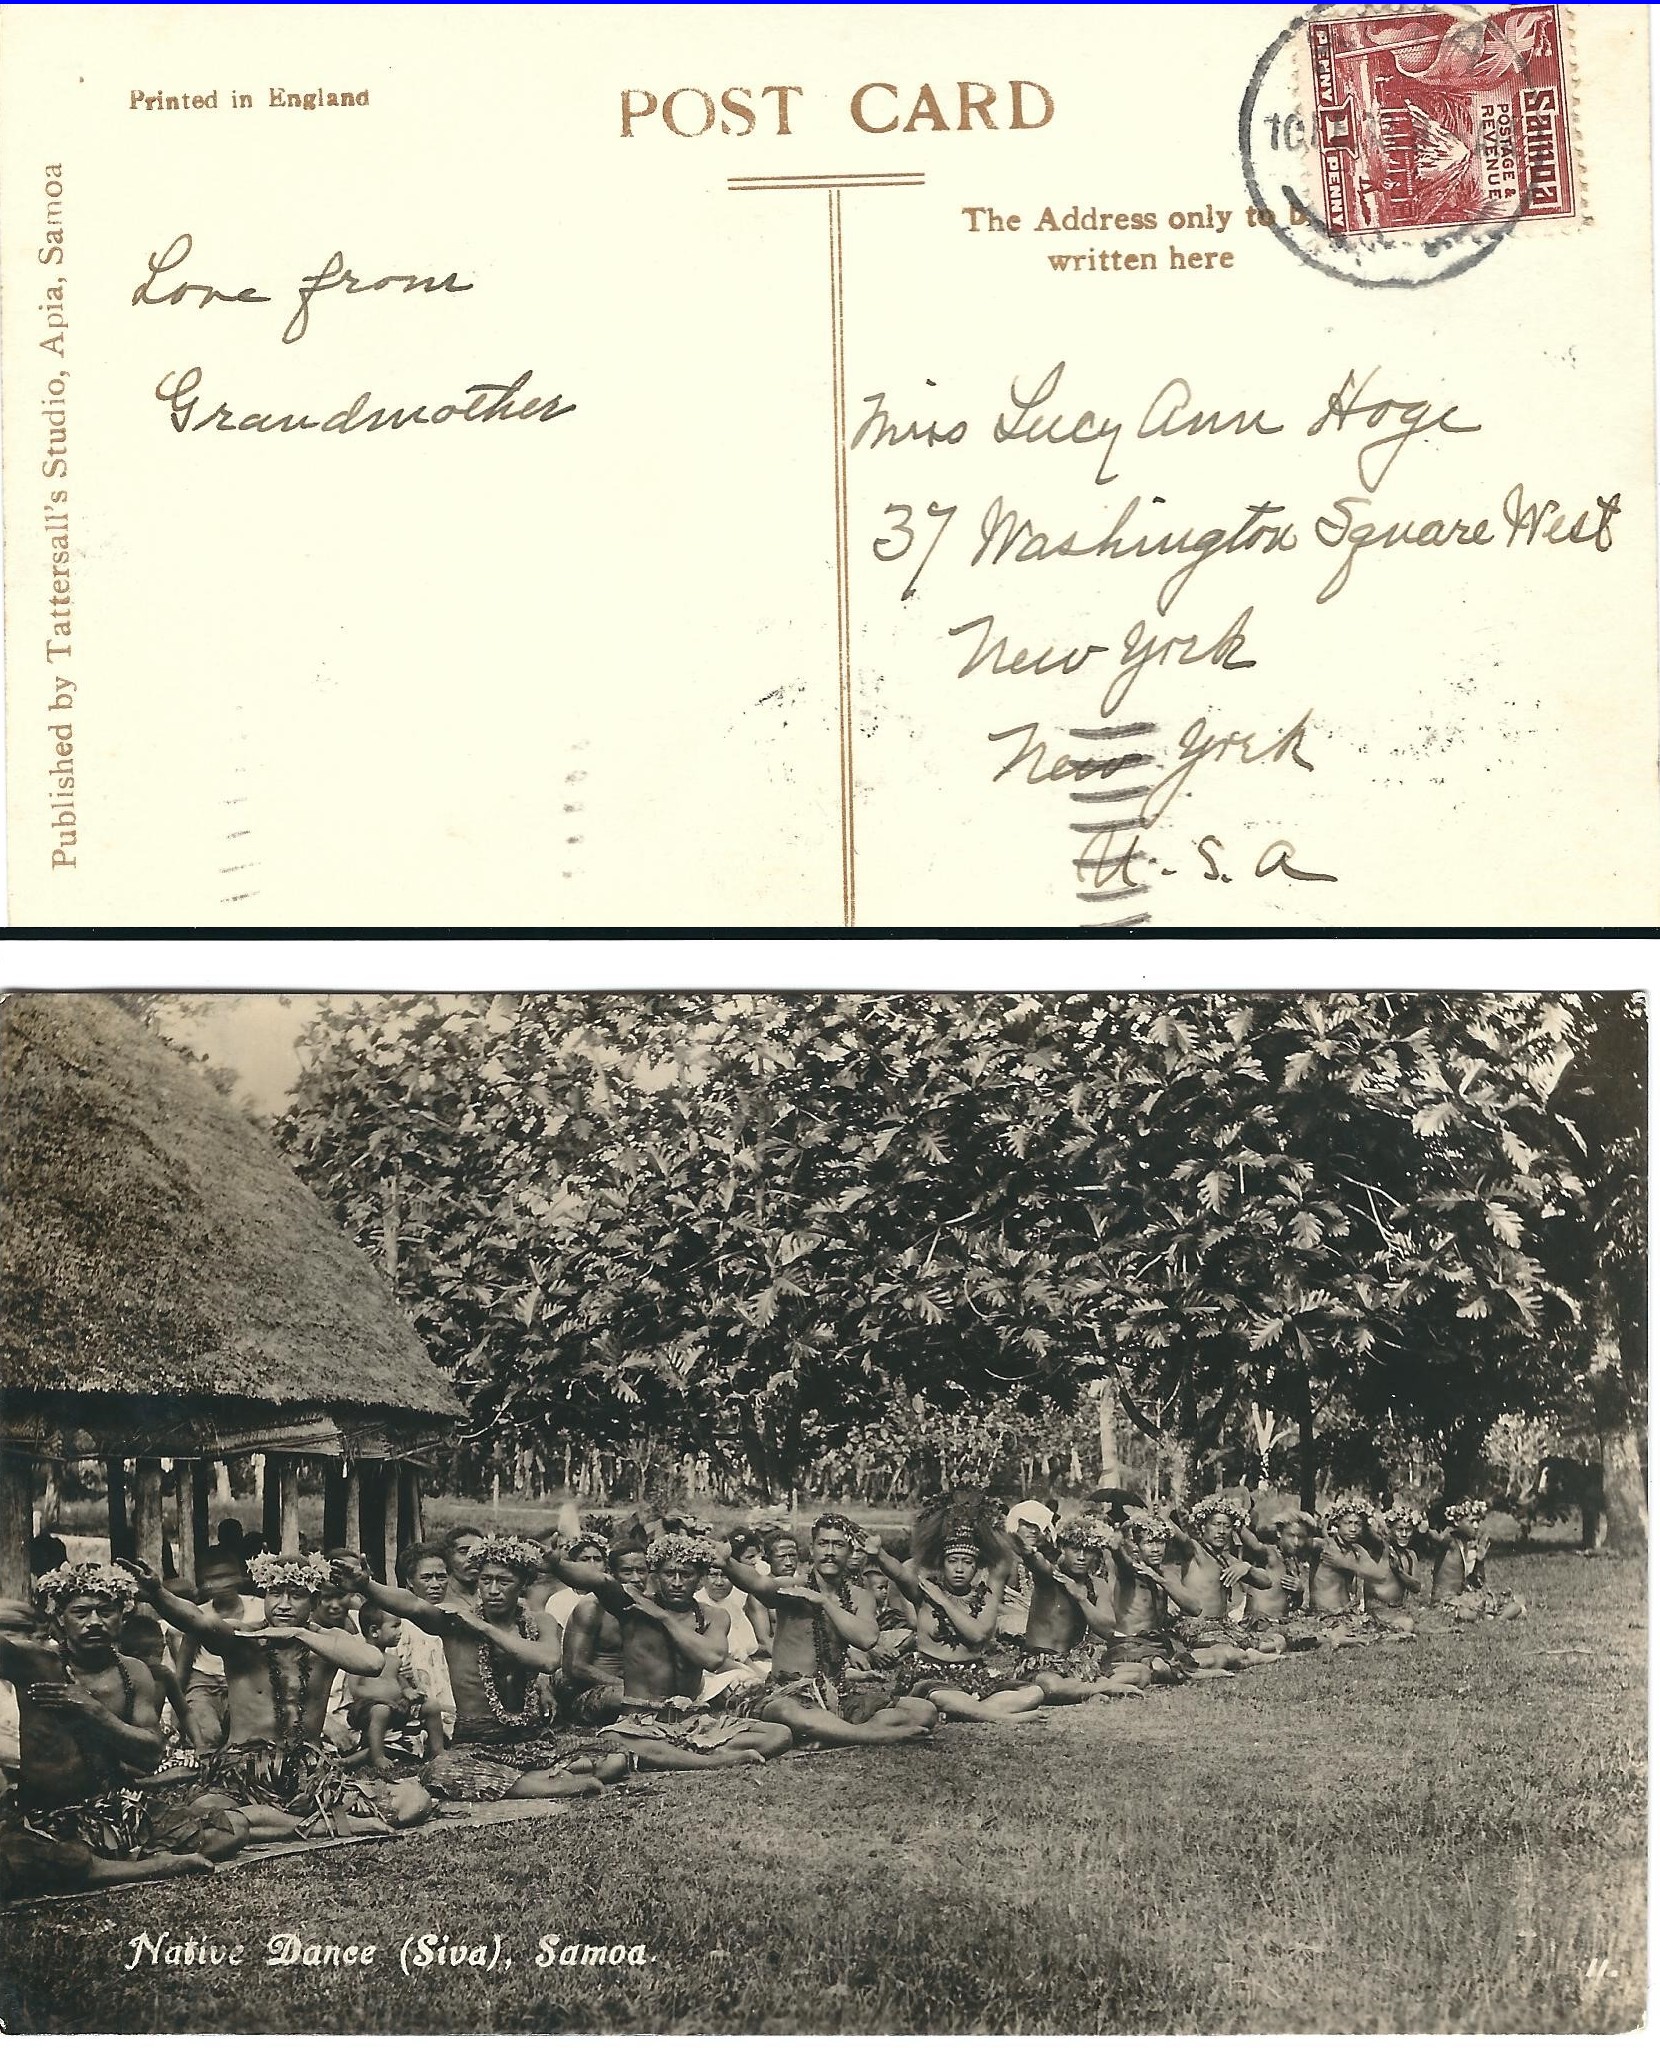 Printed in England
POST CARD
Published by Tattersall's Studio, Apia, Samoa
Love from
Grandmother
The Address only to b
written here
Samoa
POSTAGE &
REVENUE
PENNY 1 PENNY
Miss Lucy Ann Hoge
37 Washington Square West
New York
New York
U. S. A
Native Dance (Siva), Samoa.
11.